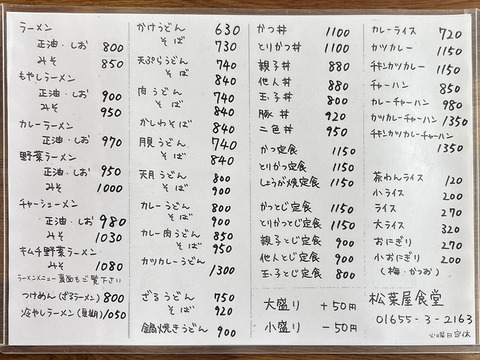 ラーメン
正油・しお 800
みそ 850
もやしラーメン
正油・しお 900
みそ 950
カレーラーメン
正油・しお 970
野菜ラーメン
正油・しお 950
みそ 1000
チャーシューメン
正油・しお 980
みそ 1030
キムチ野菜ラーメン
みそ 1080
ラーメンメニュー裏面もご覧下さい
つけめん(ざるラーメン) 800
冷やしラーメン(夏期) 1050
かけうどん 630
そば 730
天ぷらうどん 740
そば 840
肉うどん 740
そば 840
かしわそば 840
月見うどん 740
そば 840
天月うどん 800
そば 900
カレーうどん 800
そば 900
カレー肉うどん 850
そば 950
カツカレーうどん
1300
ざるうどん 750
そば 920
鍋焼きうどん 900
かつ丼 1100
とりかつ丼 1100
親子丼 880
他人丼 880
玉子丼 800
豚丼 920
二色丼 950
かつ定食 1150
とりかつ定食 1150
しょうが焼定食 1150
かつとじ定食 1150
とりかつとじ定食 1150
親子とじ定食 900
他人とじ定食 900
玉子とじ定食 800
大盛り +50円
小盛り -50円
カレーライス 720
カツカレー 1150
チキンカツカレー 1150
チャーハン 850
カレーチャーハン 980
カツカレーチャーハン 1350
チキンカツカレーチャーハン
1350
茶わんライス 120
小ライス 200
ライス 270
大ライス 320
おにぎり 270
小おにぎり 200
(梅・かつお)
松葉屋食堂
01655-3-2163
火曜日定休